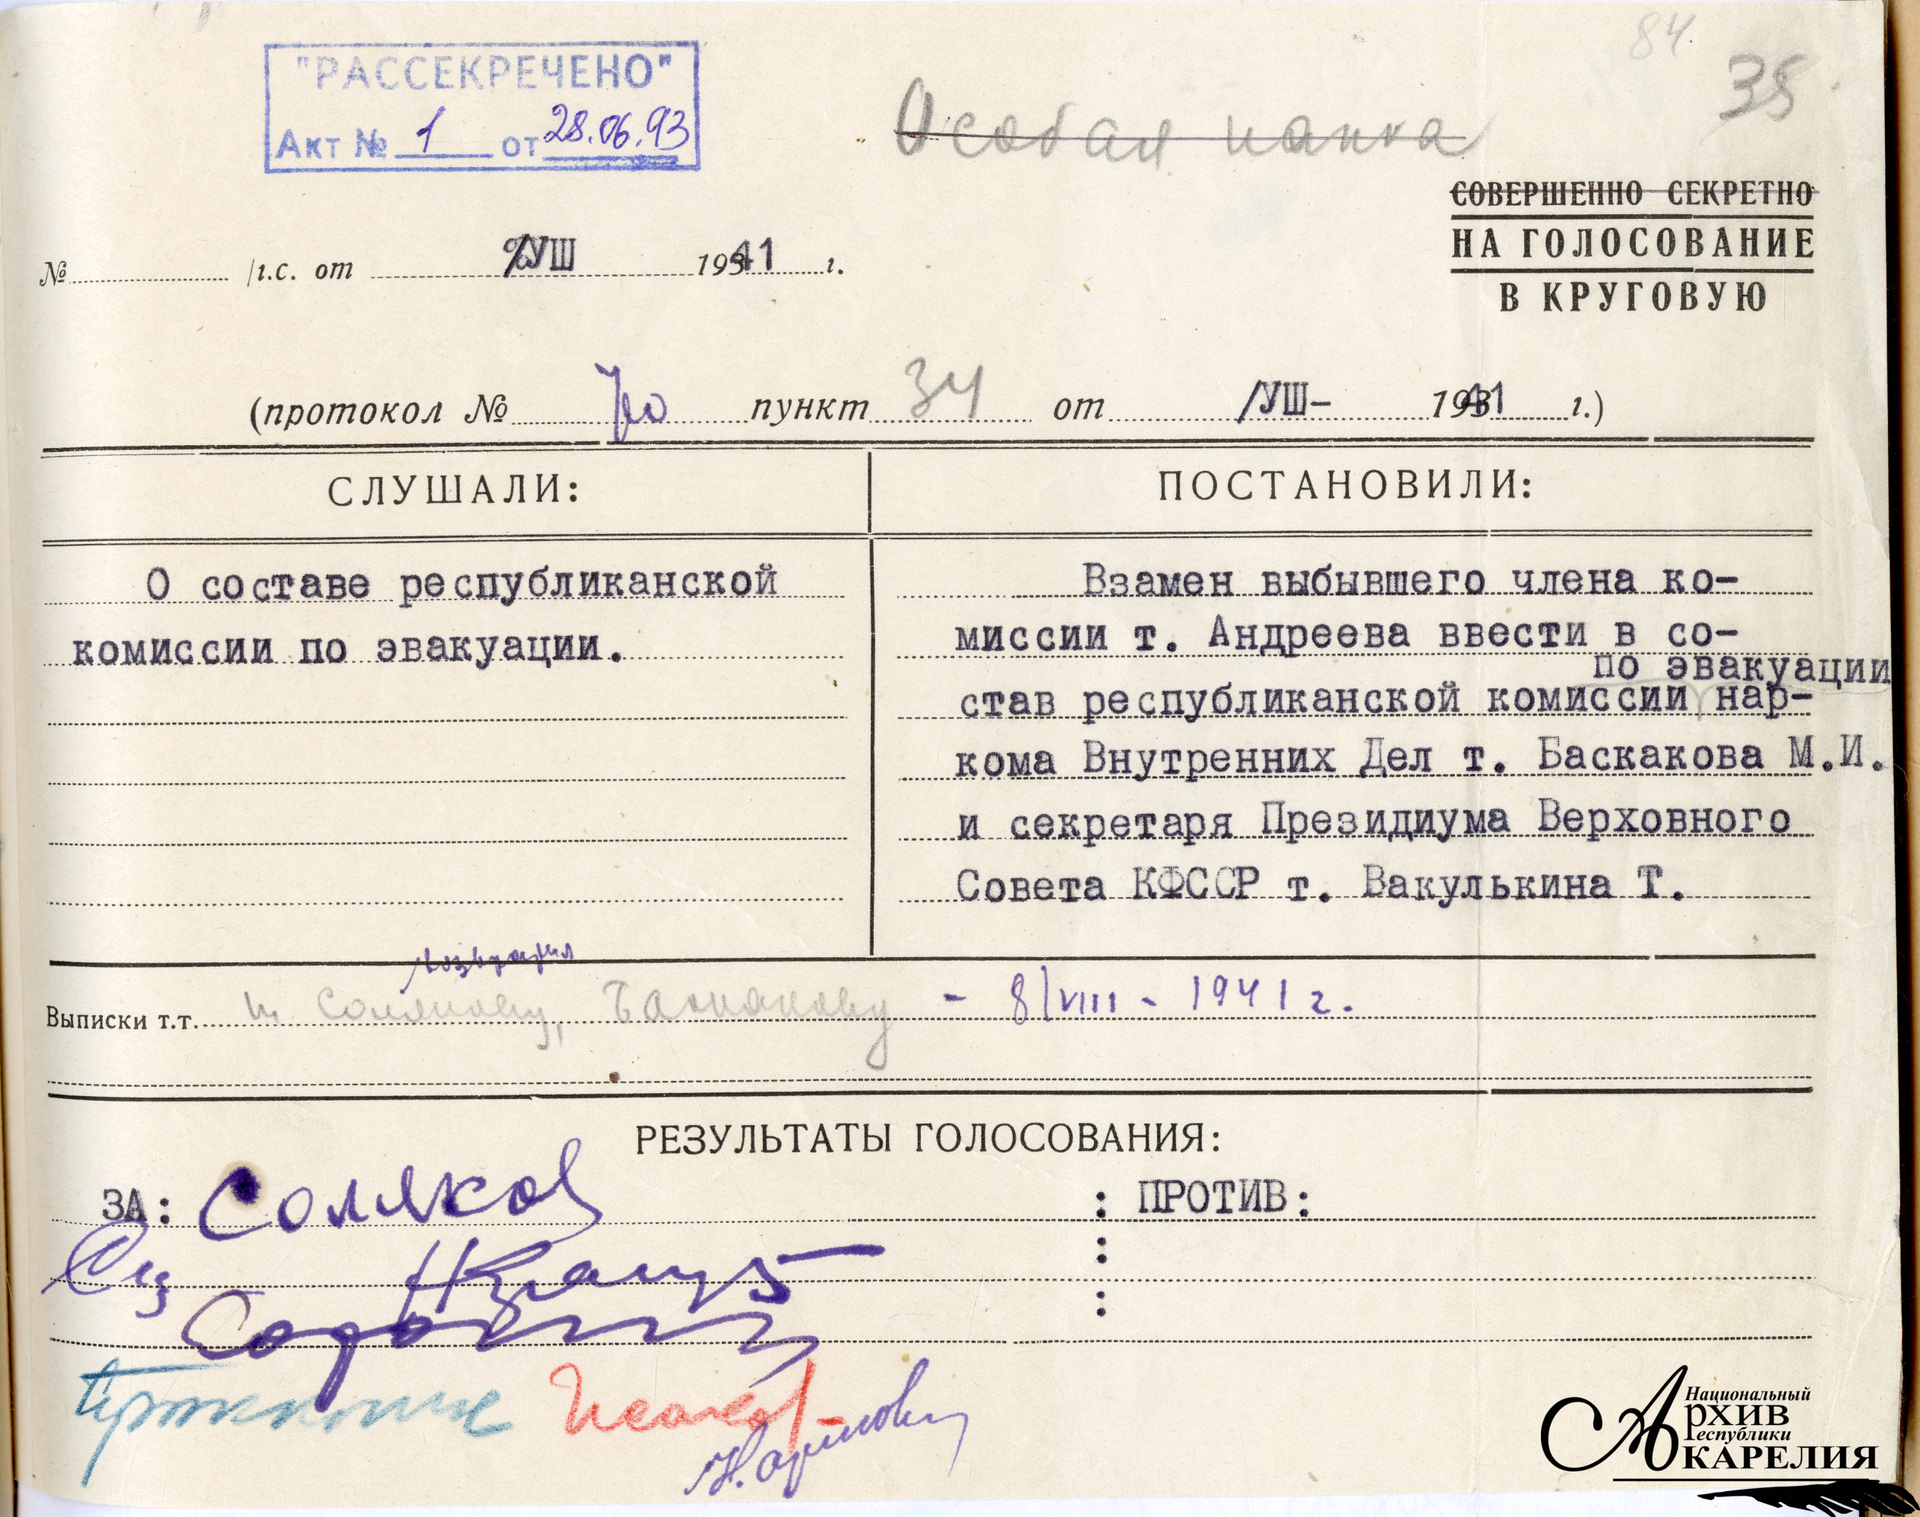 84.
35
"РАССЕКРЕЧЕНО"
Акт № 1 от 28.06.93
Особая папка
СОВЕРШЕННО СЕКРЕТНО
НА ГОЛОСОВАНИЕ
В КРУГОВУЮ
№ /г.с. от /УШ 1941 г.
(протокол № 70 пункт 34 от /УШ- 1941 г.)
СЛУШАЛИ:
ПОСТАНОВИЛИ:
О составе республиканской
комиссии по эвакуации.
Взамен выбывшего члена ко-
миссии т. Андреева ввести в со-
по эвакуации
став республиканской комиссии нар-
кома Внутренних Дел т. Баскакова М.И.
и секретаря Президиума Верховного
Совета КФССР т. Вакулькина Т.
Выписки т.т. Солякову, Баскакову - 8/VIII - 1941 г.
РЕЗУЛЬТАТЫ ГОЛОСОВАНИЯ:
ЗА: Соляков : ПРОТИВ:
:
:
Национальный
Архив
Республики
Карелия